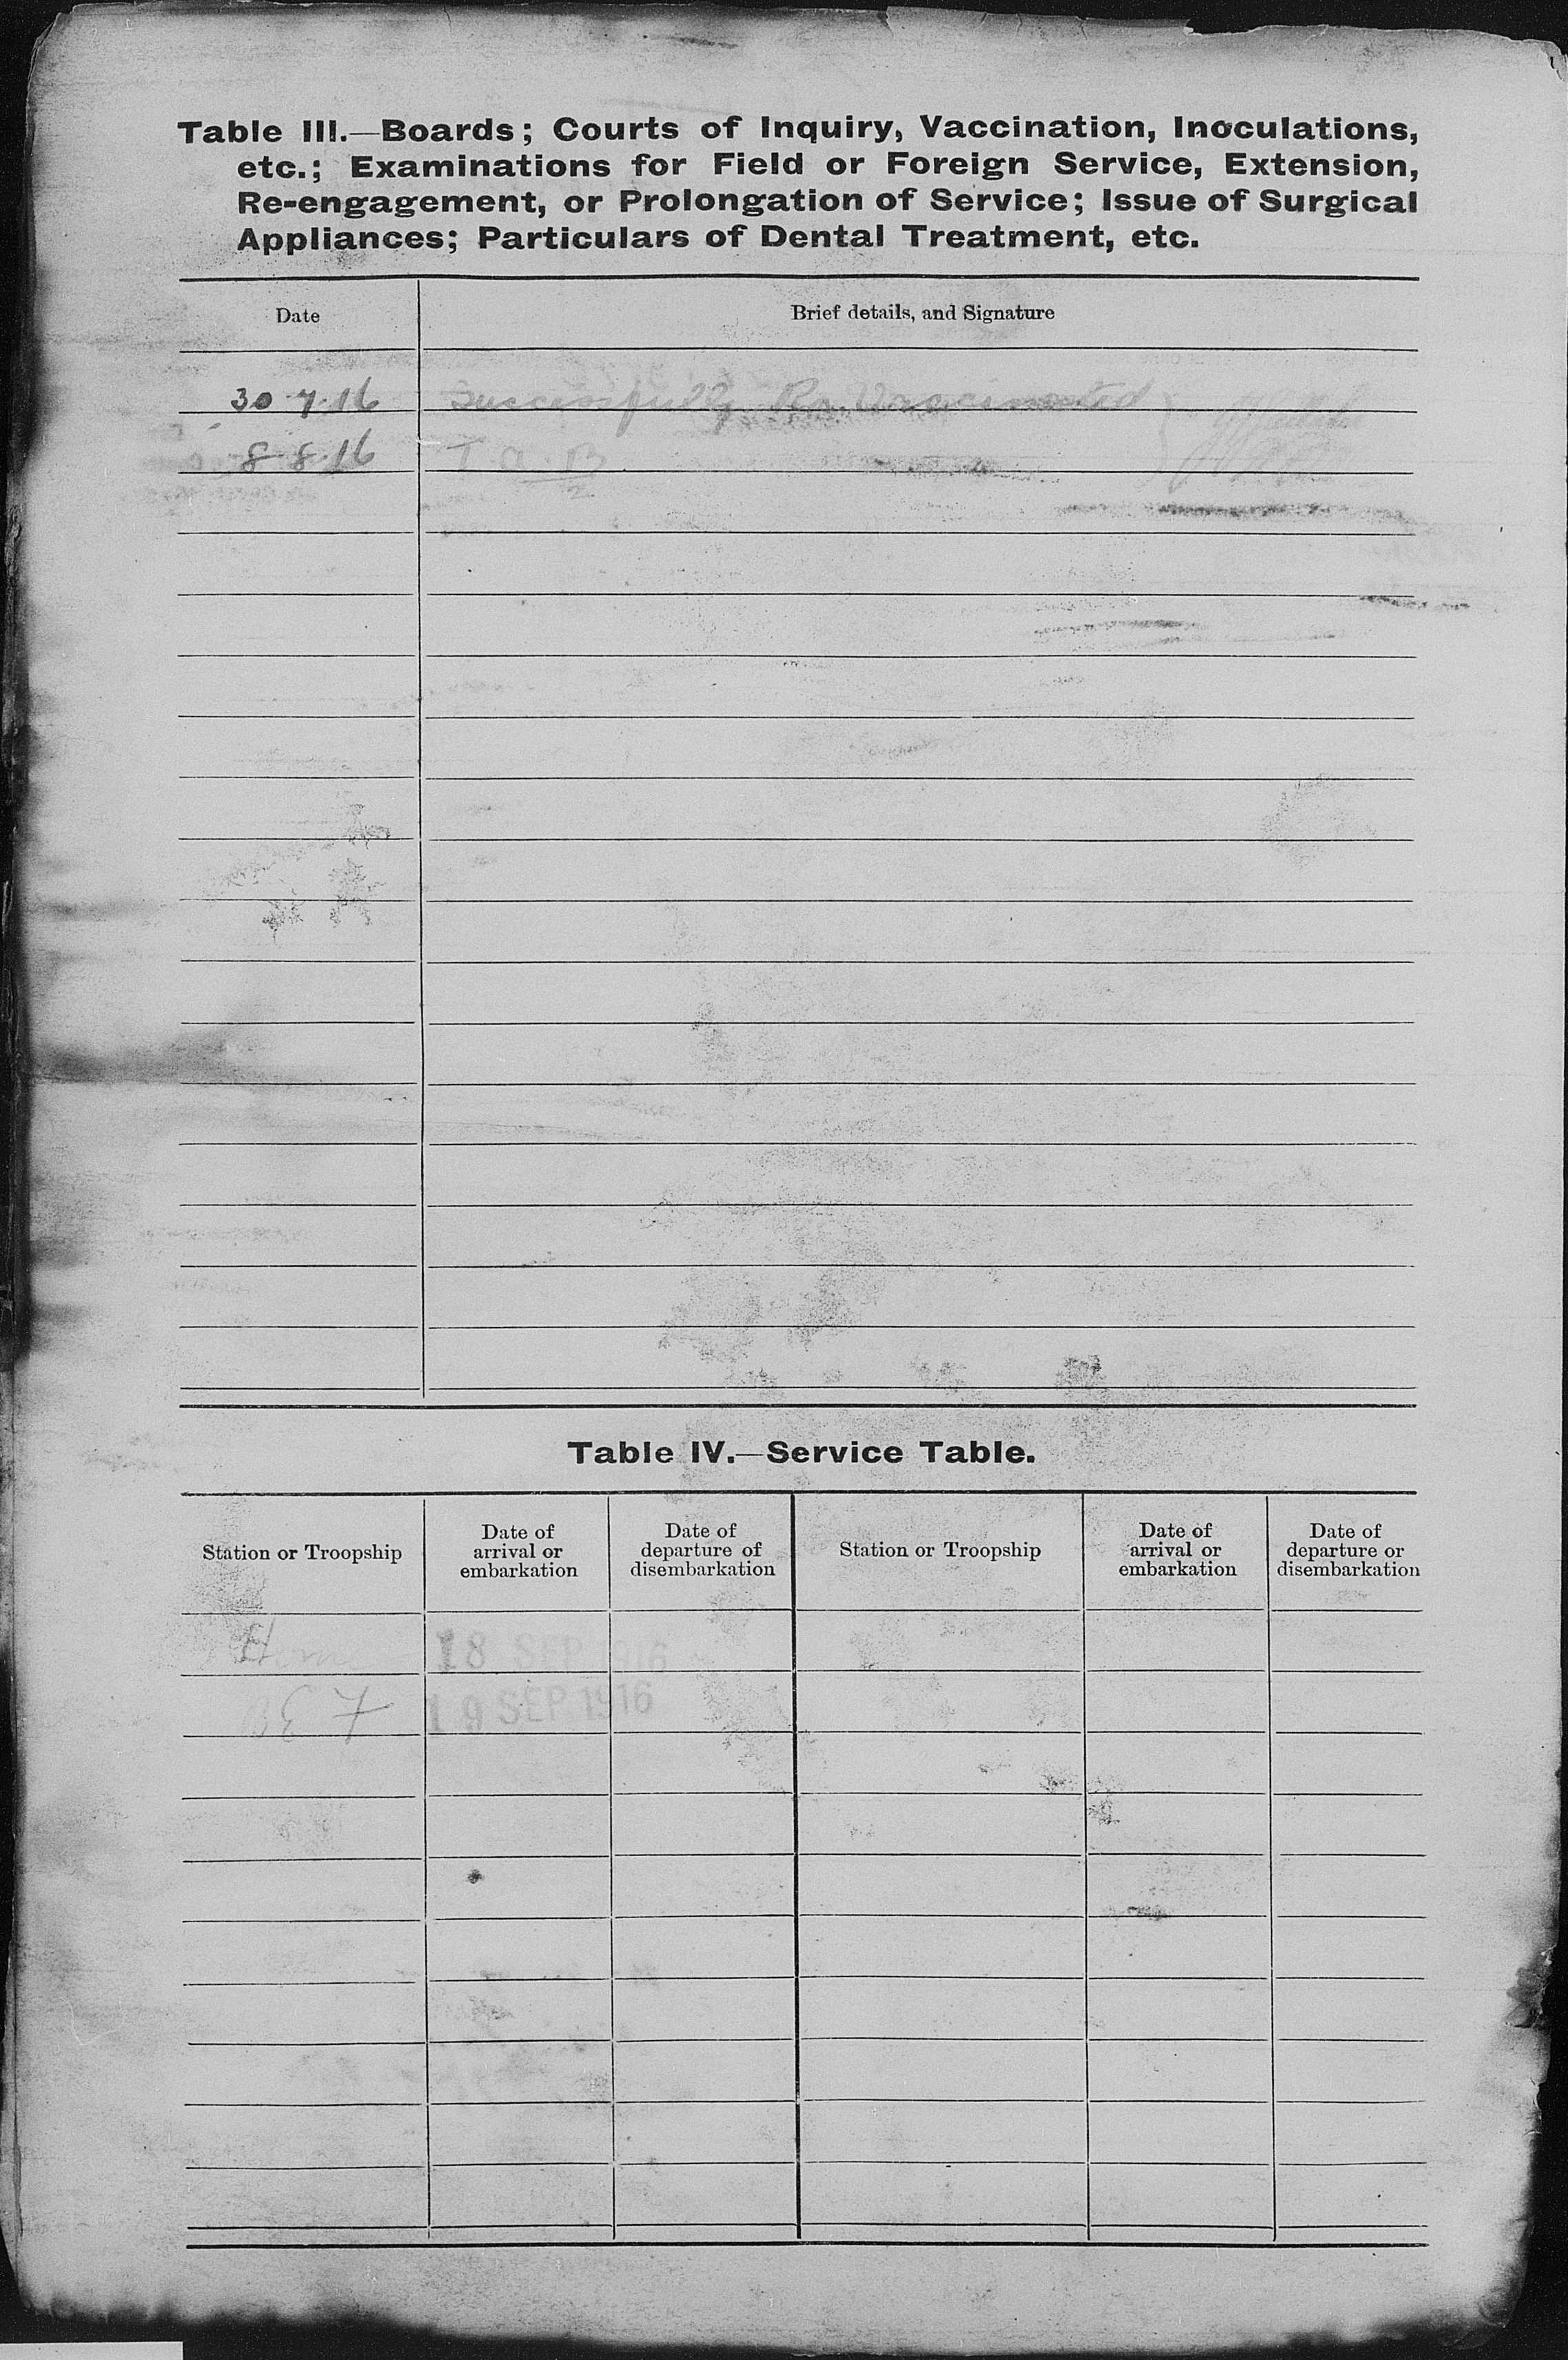 Table III.—Boards; Courts of Inquiry, Vaccination, Inoculations,
etc.; Examinations for Field or Foreign Service, Extension,
Re-engagement, or Prolongation of Service; Issue of Surgical
Appliances; Particulars of Dental Treatment, etc.
Date Brief details, and Signature
30 7.16 Successfully Re. Vaccinated
8-8.16 T.a.B
2
Table IV.—Service Table.
Station or Troopship Date of arrival or embarkation Date of departure of disembarkation Station or Troopship Date of arrival or embarkation Date of departure or disembarkation
Home 18 SEP 1916
BEF 19 SEP 1916